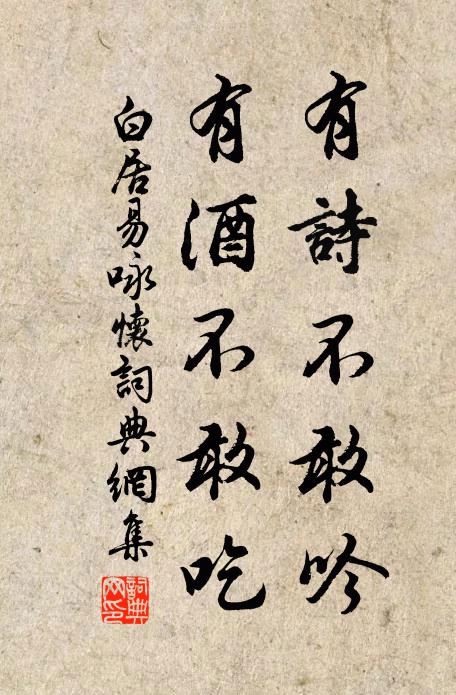 有詩不敢吟
有酒不敢吃
白居易咏懷詞典網集
詞典網印